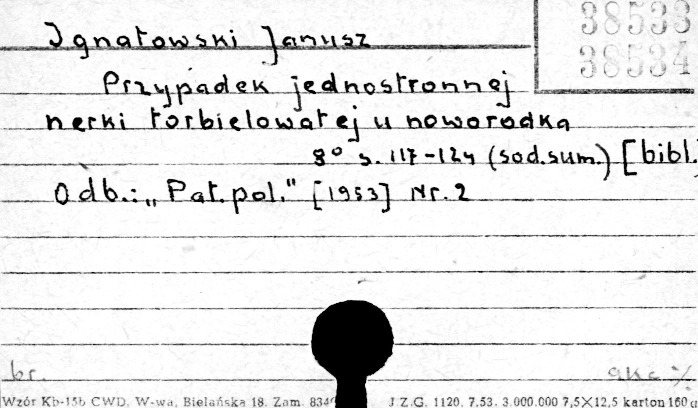 38533
38534
Ignatowski Janusz
Przypadek jednostronnej
nerki torbielowatej u noworodka
8° s. 117-124 (sod.sum.) [bibl.]
Odb.: „Pat. pol." [1953] Nr. 2
br.
akc
Wzór Kb-15b CWD, W-wa, Bielańska 18. Zam. 834 J Z.G. 1120. 7.53. 3.000.000 7,5×12,5 karton 160